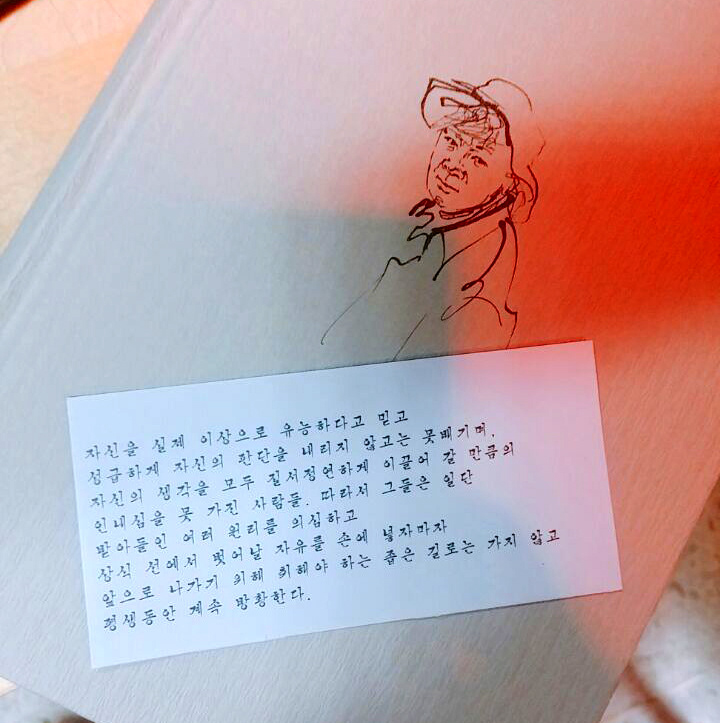 자신을 실제 이상으로 유능하다고 믿고
성급하게 자신의 판단을 내리지 않고는 못배기며,
자신의 생각을 모두 질서정연하게 이끌어 갈 만큼의
인내심을 못 가진 사람들. 따라서 그들은 일단
받아들인 여러 원리를 의심하고
상식 선에서 벗어날 자유를 손에 넣자마자
앞으로 나가기 위해 취해야 하는 좁은 길로는 가지 않고
평생동안 계속 방황한다.